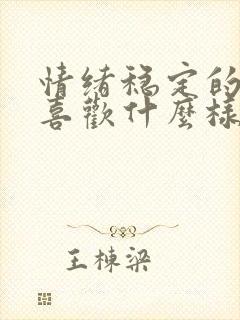 情绪稳定的
喜歡什麼樣
王棟梁